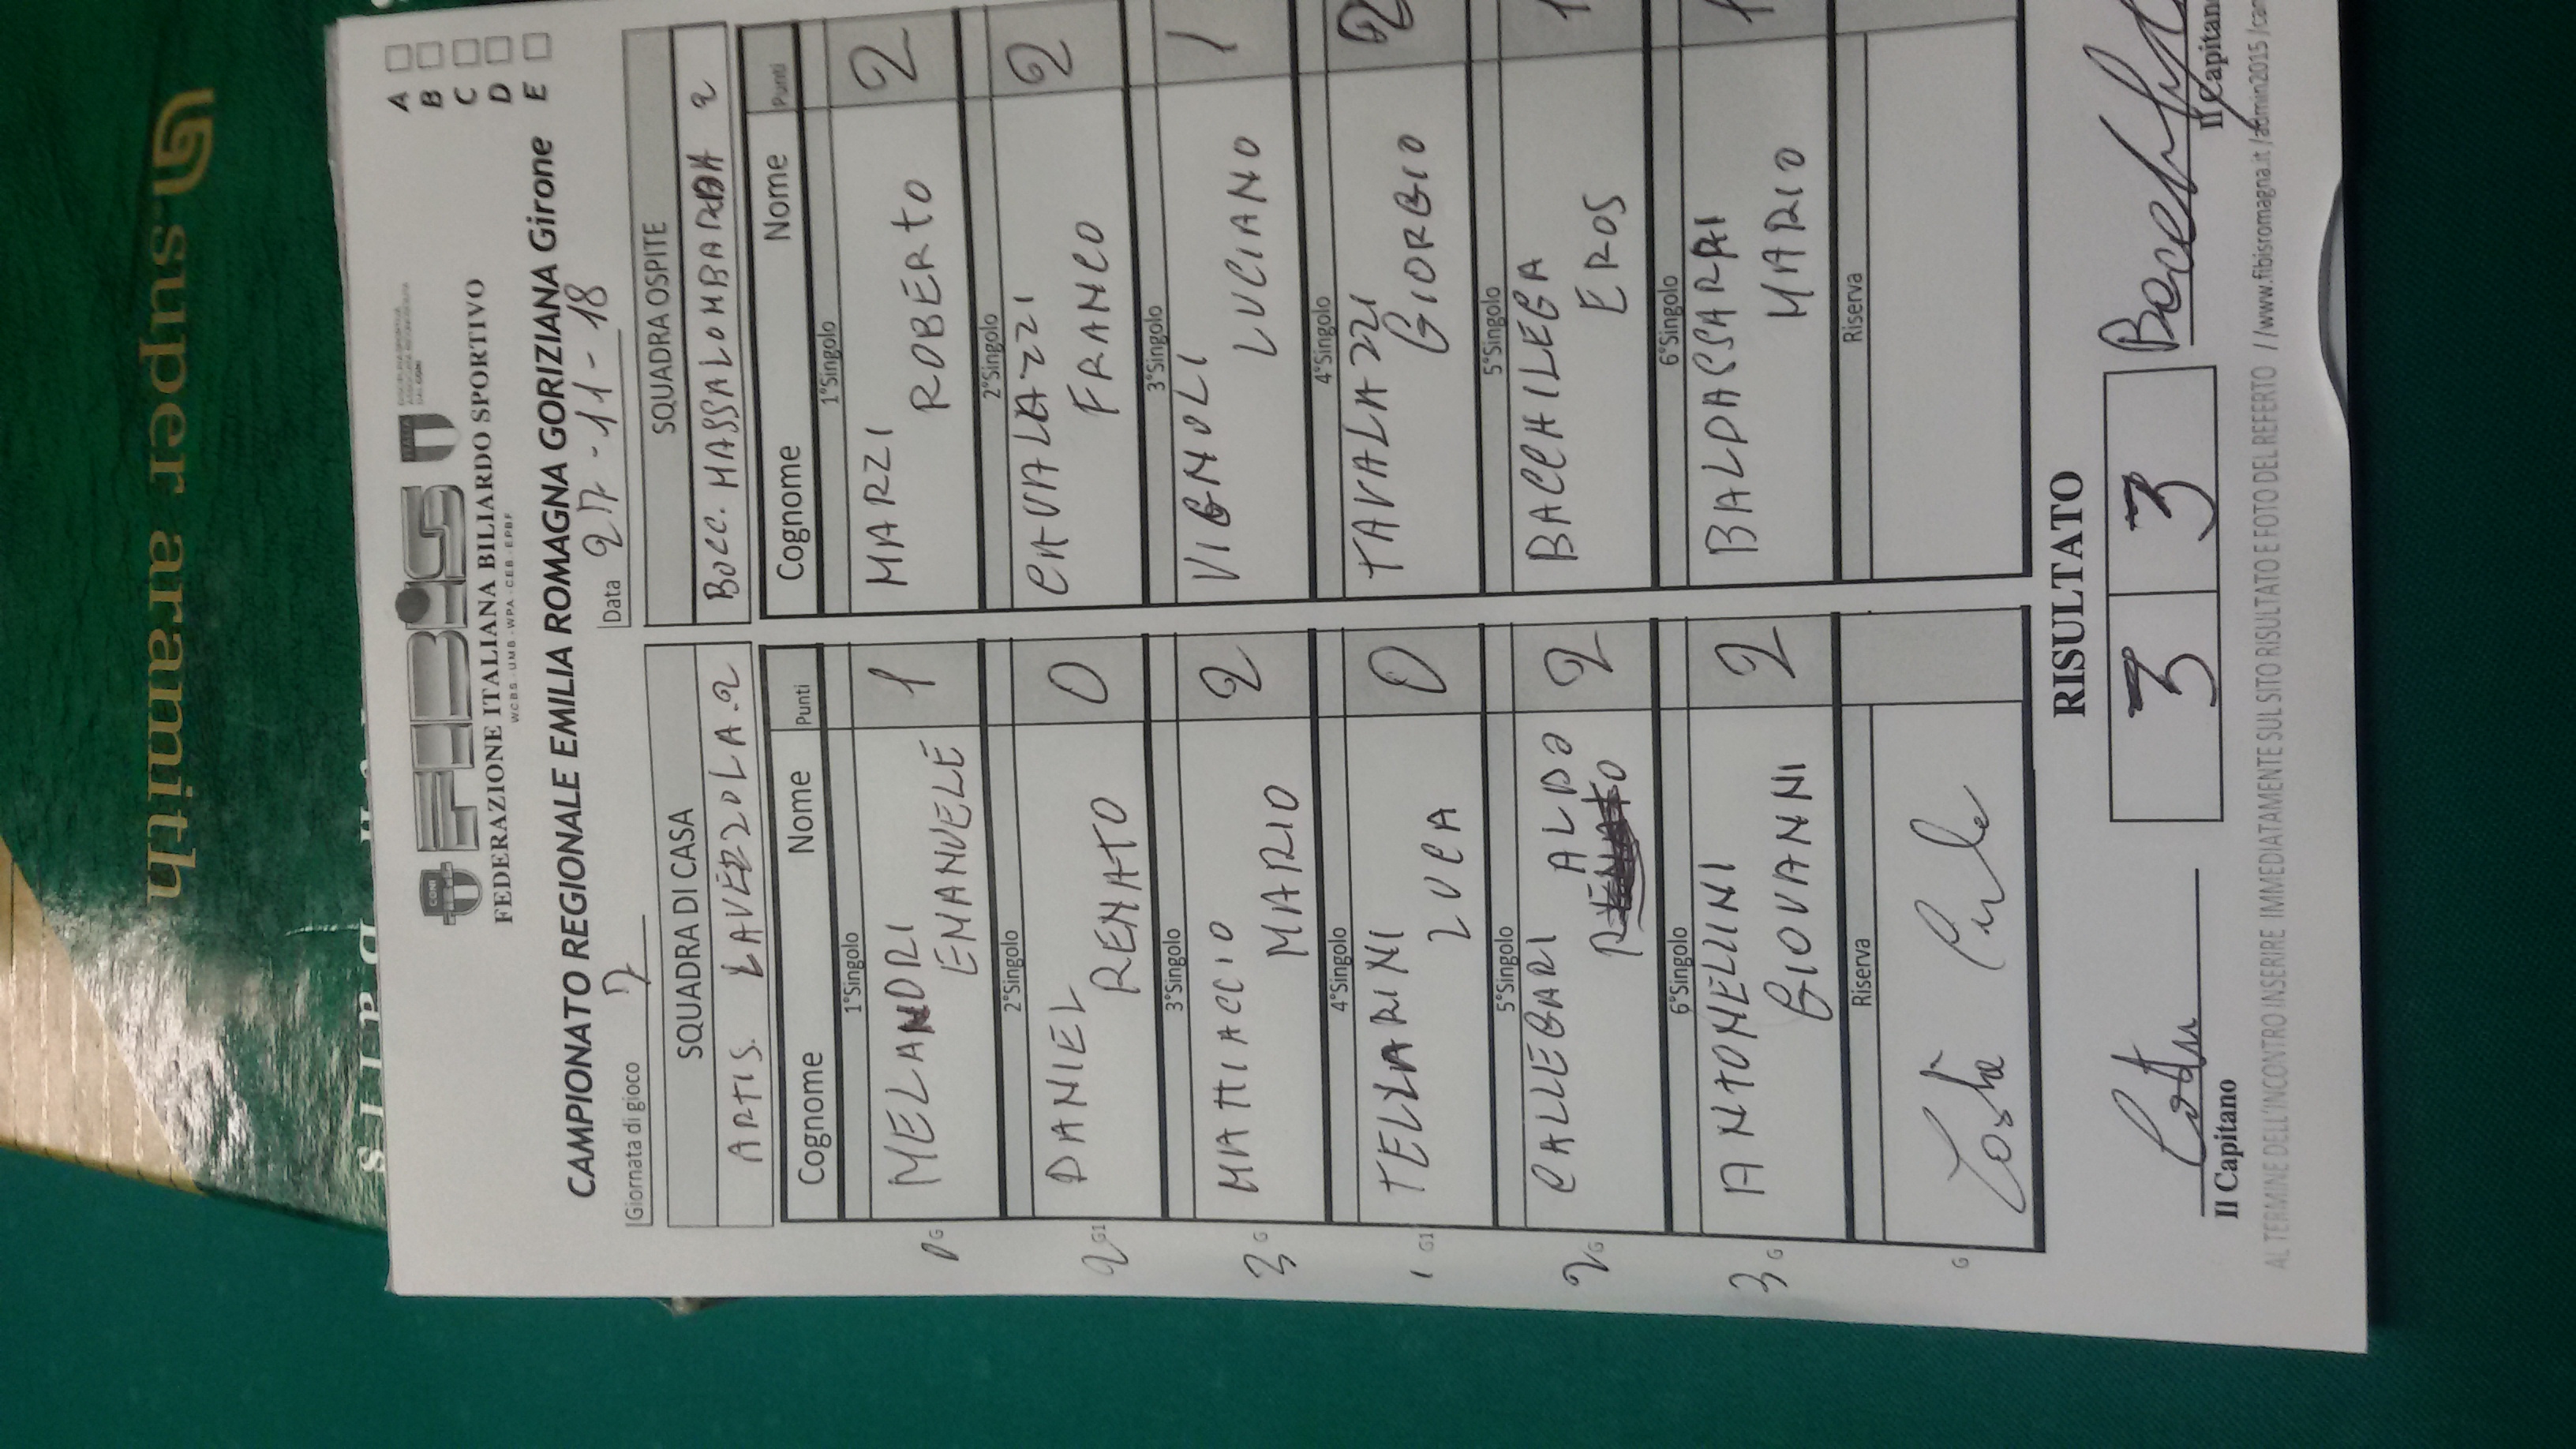 super aramith
CONI
FIBiS
FEDERAZIONE ITALIANA BILIARDO SPORTIVO
WCBS - UMB - WPA - CEB - EPBF
A
B
C
D
E
CAMPIONATO REGIONALE EMILIA ROMAGNA GORIZIANA Girone
Giornata di gioco 7
Data 27-11-18
SQUADRA DI CASA
SQUADRA OSPITE
ARTIS. LAVEZZOLA.2
BOCC. MASSALOMBARDA 2
Cognome Nome Punti
Cognome Nome Punti
1°Singolo
1°Singolo
1 G MELANDRI EMANUELE 1
MARZI ROBERTO 2
2°Singolo
2°Singolo
2 G1 DANIEL RENATO 0
CAVALAZZI FRANCO 2
3°Singolo
3°Singolo
3 G MATTIACCIO MARIO 2
VIGNOLI LUCIANO 1
4°Singolo
4°Singolo
1 G1 TELLARINI LUCA 0
TAVALAZZI GIORGIO 2
5°Singolo
5°Singolo
2 G CALLEGARI ALDO 2
BACCHILEGA EROS 1
6°Singolo
6°Singolo
3 G ANTONELLINI GIOVANNI 2
BALDASSARRI MARIO 1
Riserva
Riserva
G
RISULTATO
3 3
Il Capitano
Il Capitano
AL TERMINE DELL'INCONTRO INSERIRE IMMEDIATAMENTE SUL SITO RISULTATO E FOTO DEL REFERTO //www.fibisromagna.it/admin2015/